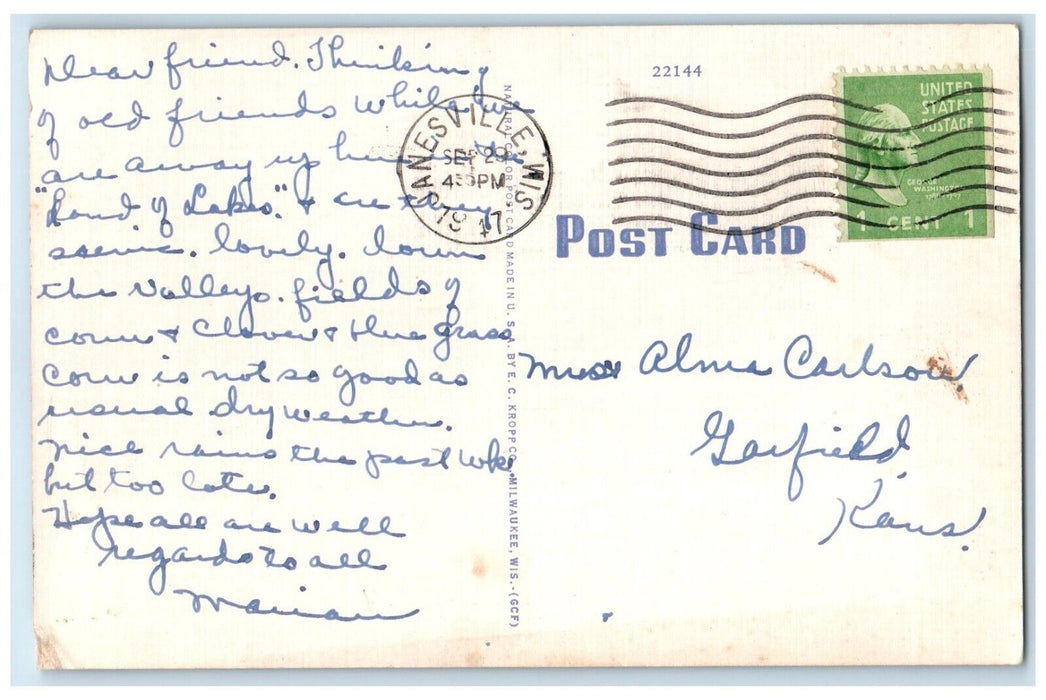 Dear friend. Thinking
of old friends while we
are away up here in the
"Land of Lakes." & are they
scenic. lovely. down
the Valleys. fields of
corn & Clover & blue grass
Corn is not so good as
usual dry weather.
nice rains the past wk
but too late.
Hope all are well
regards to all
Marian
NATURAL COLOR POST CARD MADE IN U. S. A. BY E. C. KROPP CO., MILWAUKEE, WIS.-(GCF)
22144
JANESVILLE, WIS
SEP 29
4 PM
1947
UNITED
STATES
POSTAGE
GEORGE
WASHINGTON
1 CENT 1
POST CARD
Miss Alma Carlson
Garfield,
Kans.